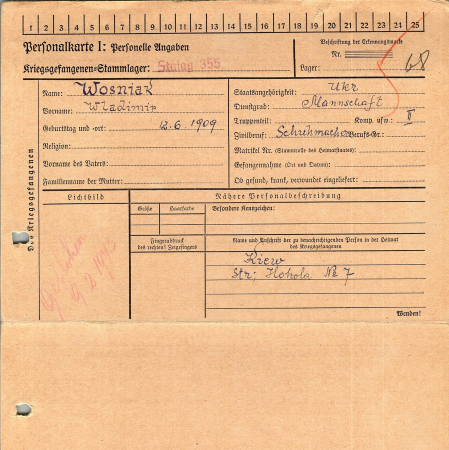 1 2 3 4 5 6 7 8 9 10 11 12 13 14 15 16 17 18 19 20 21 22 23 24 25
Personalkarte I: Personelle Angaben
Beschriftung der Erkennungsmarke
Nr.
Kriegsgefangenen-Stammlager: Stalag 355
Lager: 68
Des Kriegsgefangenen
Name: Wosniak
Staatsangehörigkeit: Ukr
Vorname: Wladimir
Dienstgrad: Mannschaft
Truppenteil: Komp. usw.: II
Geburtstag und -ort: 12.6.1909
Zivilberuf: Schuhmacher Berufs-Gr.:
Religion:
Matrikel Nr. (Stammrolle des Heimatstaates):
Vorname des Vaters:
Gefangennahme (Ort und Datum):
Familienname der Mutter:
Ob gesund, krank, verwundet eingeliefert:
Lichtbild
Nähere Personalbeschreibung
Größe
Haarfarbe
Besondere Kennzeichen:
Fingerabdruck
des rechten! Zeigefingers
Name und Anschrift der zu benachrichtigenden Person in der Heimat
des Kriegsgefangenen
Kiew
Str; Hohola № 7
Wenden!